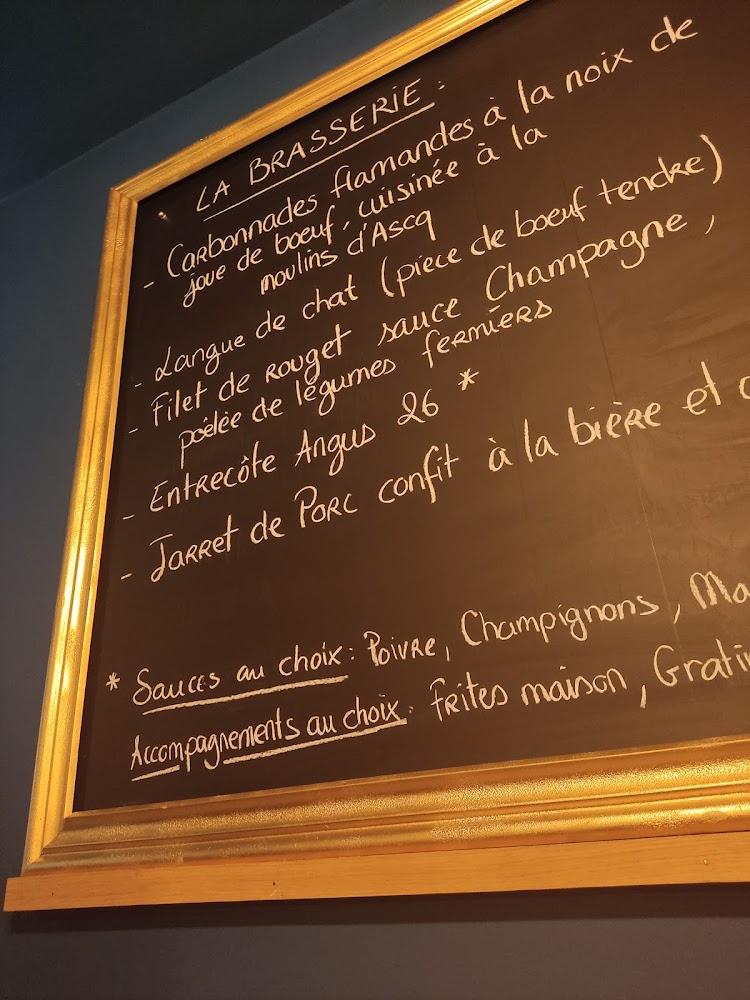 LA BRASSERIE :
- Carbonnades flamandes à la noix de
joue de boeuf, cuisinée à la
moulins d'Ascq
- Langue de chat (pièce de boeuf tendre)
- Filet de rouget sauce Champagne,
poêlée de légumes fermiers
- Entrecôte Angus 26 *
- Jarret de Porc confit à la bière et
* Sauces au choix : Poivre, Champignons, Ma
Accompagnements au choix : frites maison, Grati